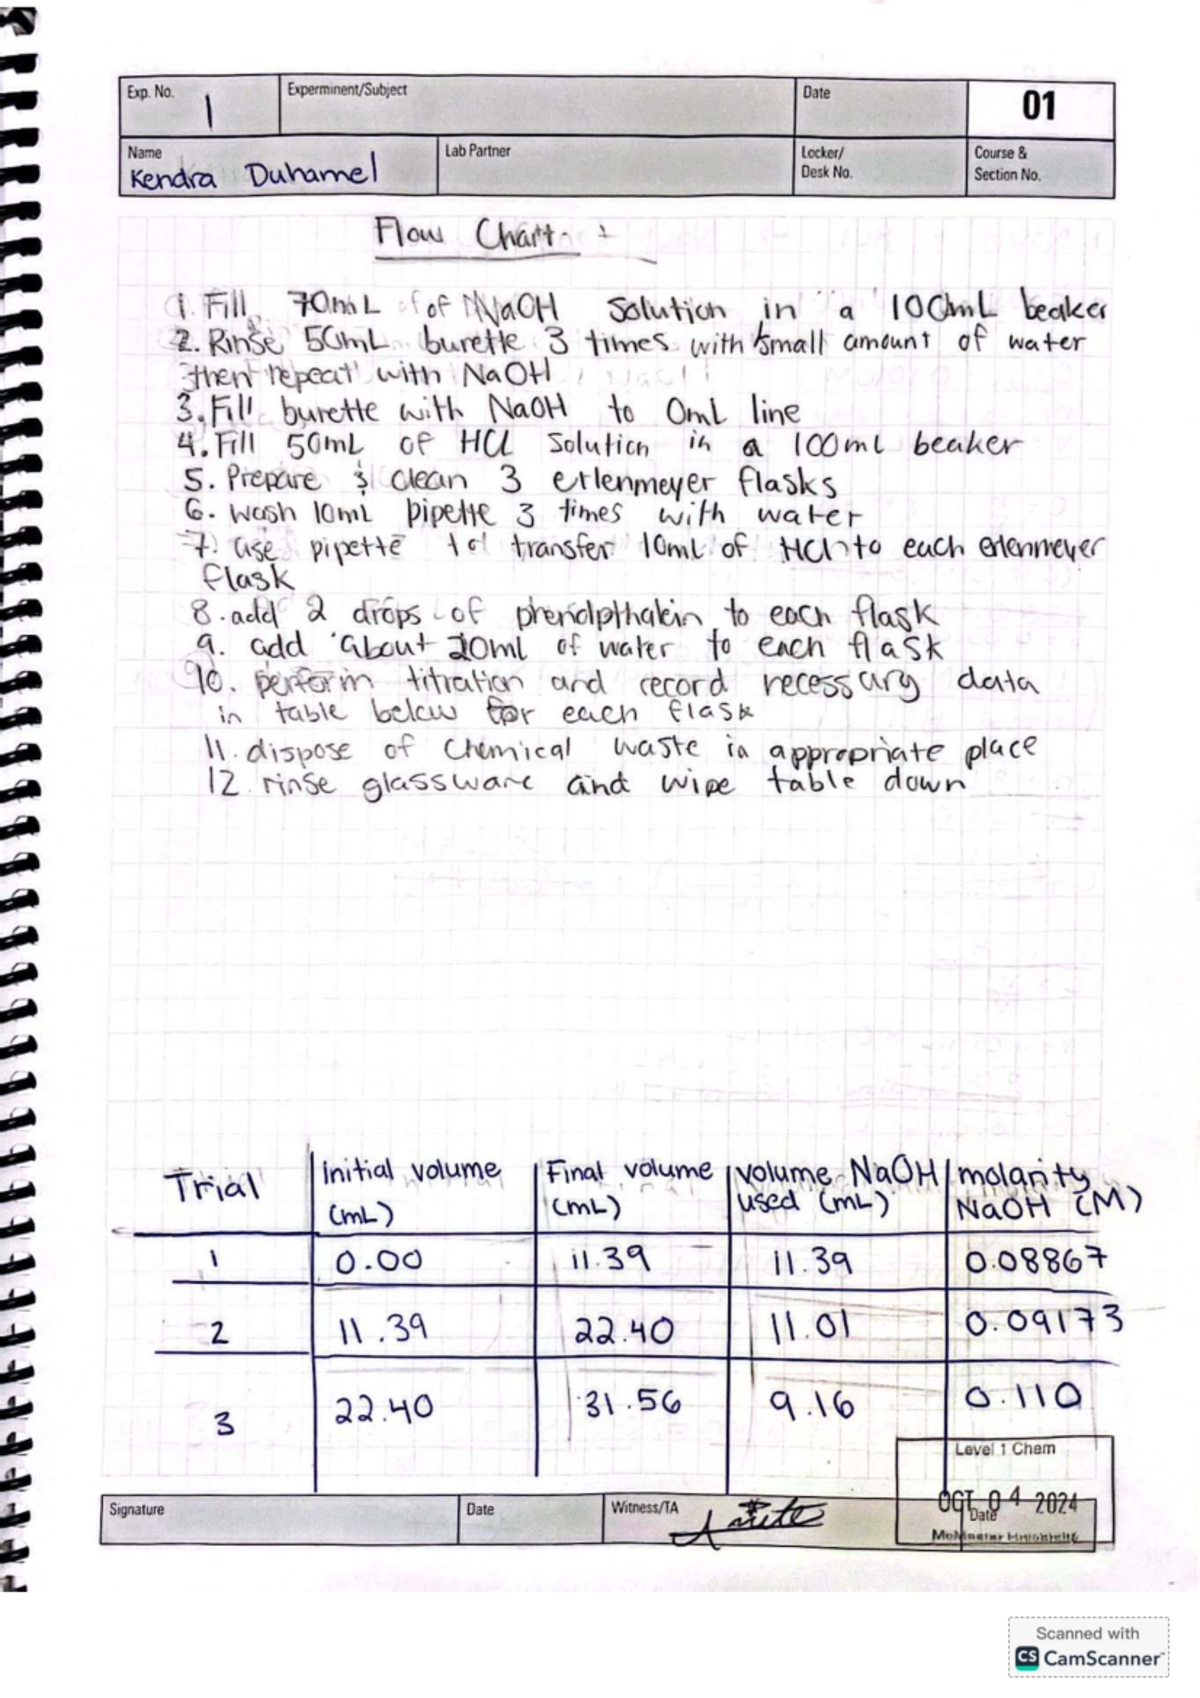 Exp. No.
1
Experminent/Subject
Date
01
Name
Kendra Duhamel
Lab Partner
Locker/
Desk No.
Course &
Section No.
Flow Chart
1. Fill 70mL of NaOH solution in a 100mL beaker
2. Rinse 50mL burette 3 times with small amount of water
then repeat with NaOH
3. Fill burette with NaOH to 0mL line
4. Fill 50mL of HCl solution in a 100ml beaker
5. Prepare & clean 3 erlenmeyer flasks
6. wash 10mL pipette 3 times with water
7. use pipette to transfer 10ml of HCl to each erlenmeyer
flask
8. add 2 drops of phenolpthalein to each flask
9. add about 20ml of water to each flask
10. perform titration and record necessary data
in table below for each flask
11. dispose of chemical waste in appropriate place
12. rinse glassware and wipe table down
Trial | initial volume (mL) | Final volume (mL) | volume NaOH used (mL) | molarity NaOH (M)
1 | 0.00 | 11.39 | 11.39 | 0.08867
2 | 11.39 | 22.40 | 11.01 | 0.09173
3 | 22.40 | 31.56 | 9.16 | 0.110
Level 1 Chem
OCT 04 2024
Signature
Date
Witness/TA
Date
Scanned with
CS CamScanner